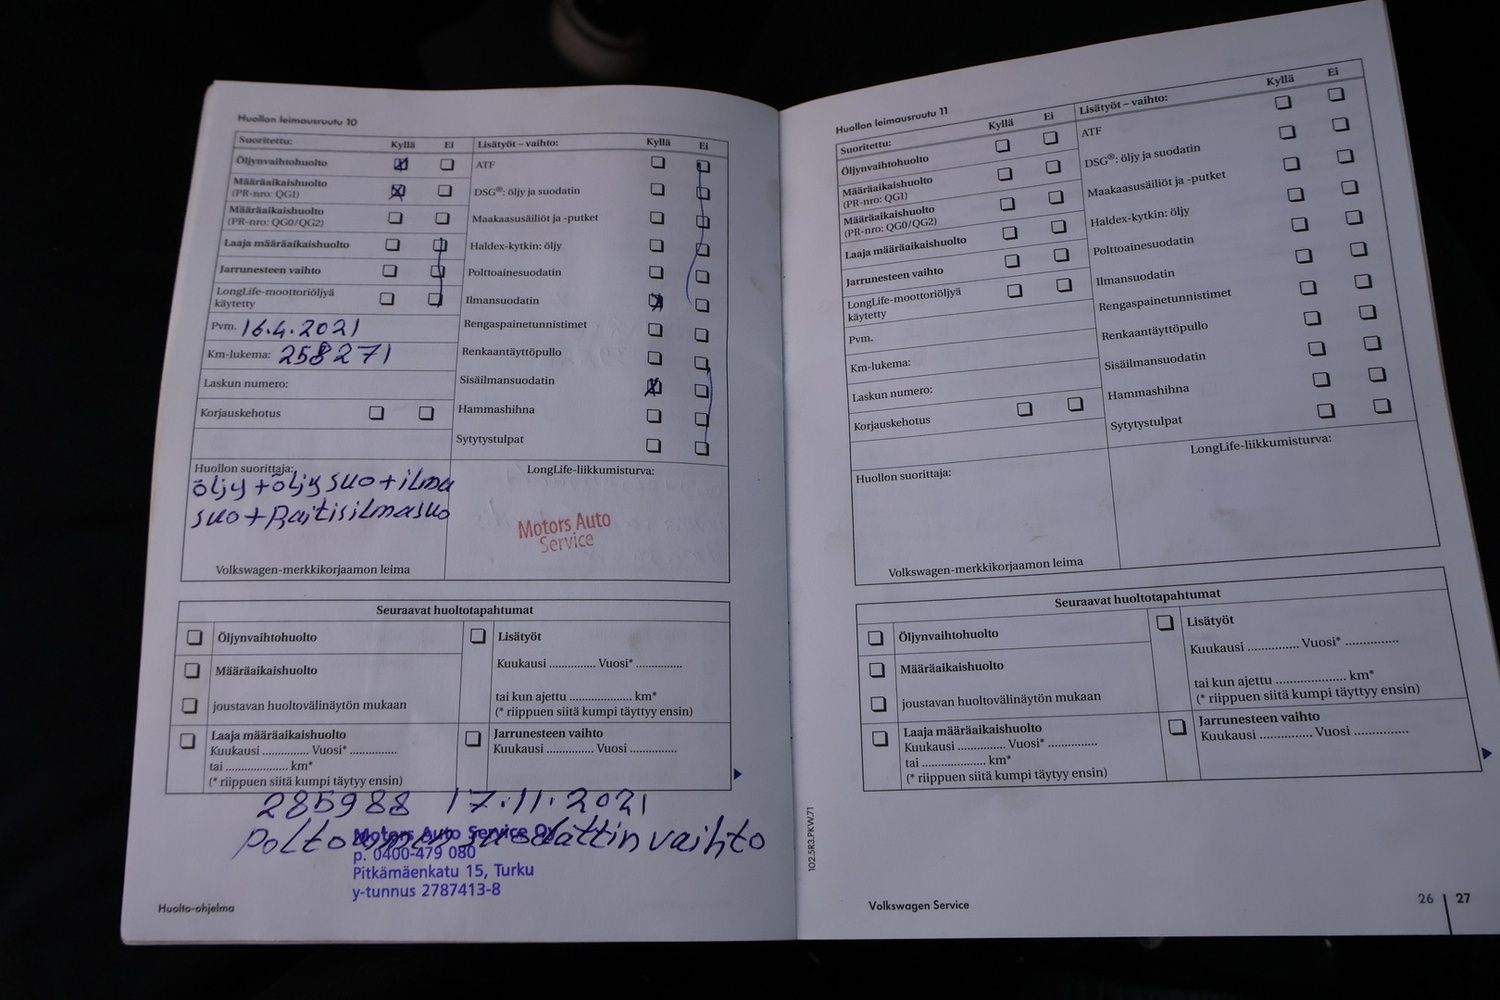 Huollon leimausruutu 10
Suoritettu: Kyllä Ei
Öljynvaihtohuolto
Määräaikaishuolto
(PR-nro: QG1)
Määräaikaishuolto
(PR-nro: QG0/QG2)
Laaja määräaikaishuolto
Jarrunesteen vaihto
LongLife-moottoriöljyä
käytetty
Pvm. 16.4.2021
Km-lukema: 258271
Laskun numero:
Korjauskehotus
Lisätyöt – vaihto: Kyllä Ei
ATF
DSG®: öljy ja suodatin
Maakaasusäiliöt ja -putket
Haldex-kytkin: öljy
Polttoainesuodatin
Ilmansuodatin
Rengaspainetunnistimet
Renkaantäyttöpullo
Sisäilmansuodatin
Hammashihna
Sytytystulpat
Huollon suorittaja:
öljy + öljy suo + ilma
suo + Raitisilmasuo
Volkswagen-merkkikorjaamon leima
LongLife-liikkumisturva:
Motors Auto
Service
Seuraavat huoltotapahtumat
Öljynvaihtohuolto
Määräaikaishuolto
joustavan huoltovälinäytön mukaan
Laaja määräaikaishuolto
Kuukausi .............. Vuosi* ..............
tai ................... km*
(* riippuen siitä kumpi täytyy ensin)
Lisätyöt
Kuukausi .............. Vuosi* ..............
tai kun ajettu ................... km*
(* riippuen siitä kumpi täyttyy ensin)
Jarrunesteen vaihto
Kuukausi .............. Vuosi ..............
285988 17.11.2021
vaihto
Motors Auto Service Oy
p. 0400-479 080
Pitkämäenkatu 15, Turku
y-tunnus 2787413-8
Huolto-ohjelma
Huollon leimausruutu 11
Suoritettu: Kyllä Ei
Öljynvaihtohuolto
Määräaikaishuolto
(PR-nro: QG1)
Määräaikaishuolto
(PR-nro: QG0/QG2)
Laaja määräaikaishuolto
Jarrunesteen vaihto
LongLife-moottoriöljyä
käytetty
Pvm.
Km-lukema:
Laskun numero:
Korjauskehotus
Lisätyöt – vaihto: Kyllä Ei
ATF
DSG®: öljy ja suodatin
Maakaasusäiliöt ja -putket
Haldex-kytkin: öljy
Polttoainesuodatin
Ilmansuodatin
Rengaspainetunnistimet
Renkaantäyttöpullo
Sisäilmansuodatin
Hammashihna
Sytytystulpat
Huollon suorittaja:
Volkswagen-merkkikorjaamon leima
LongLife-liikkumisturva:
Seuraavat huoltotapahtumat
Öljynvaihtohuolto
Määräaikaishuolto
joustavan huoltovälinäytön mukaan
Laaja määräaikaishuolto
Kuukausi .............. Vuosi* ..............
tai ................... km*
(* riippuen siitä kumpi täytyy ensin)
Lisätyöt
Kuukausi .............. Vuosi* ..............
tai kun ajettu ................... km*
(* riippuen siitä kumpi täyttyy ensin)
Jarrunesteen vaihto
Kuukausi .............. Vuosi ..............
102.5R3.PKW.71
Volkswagen Service
26 27